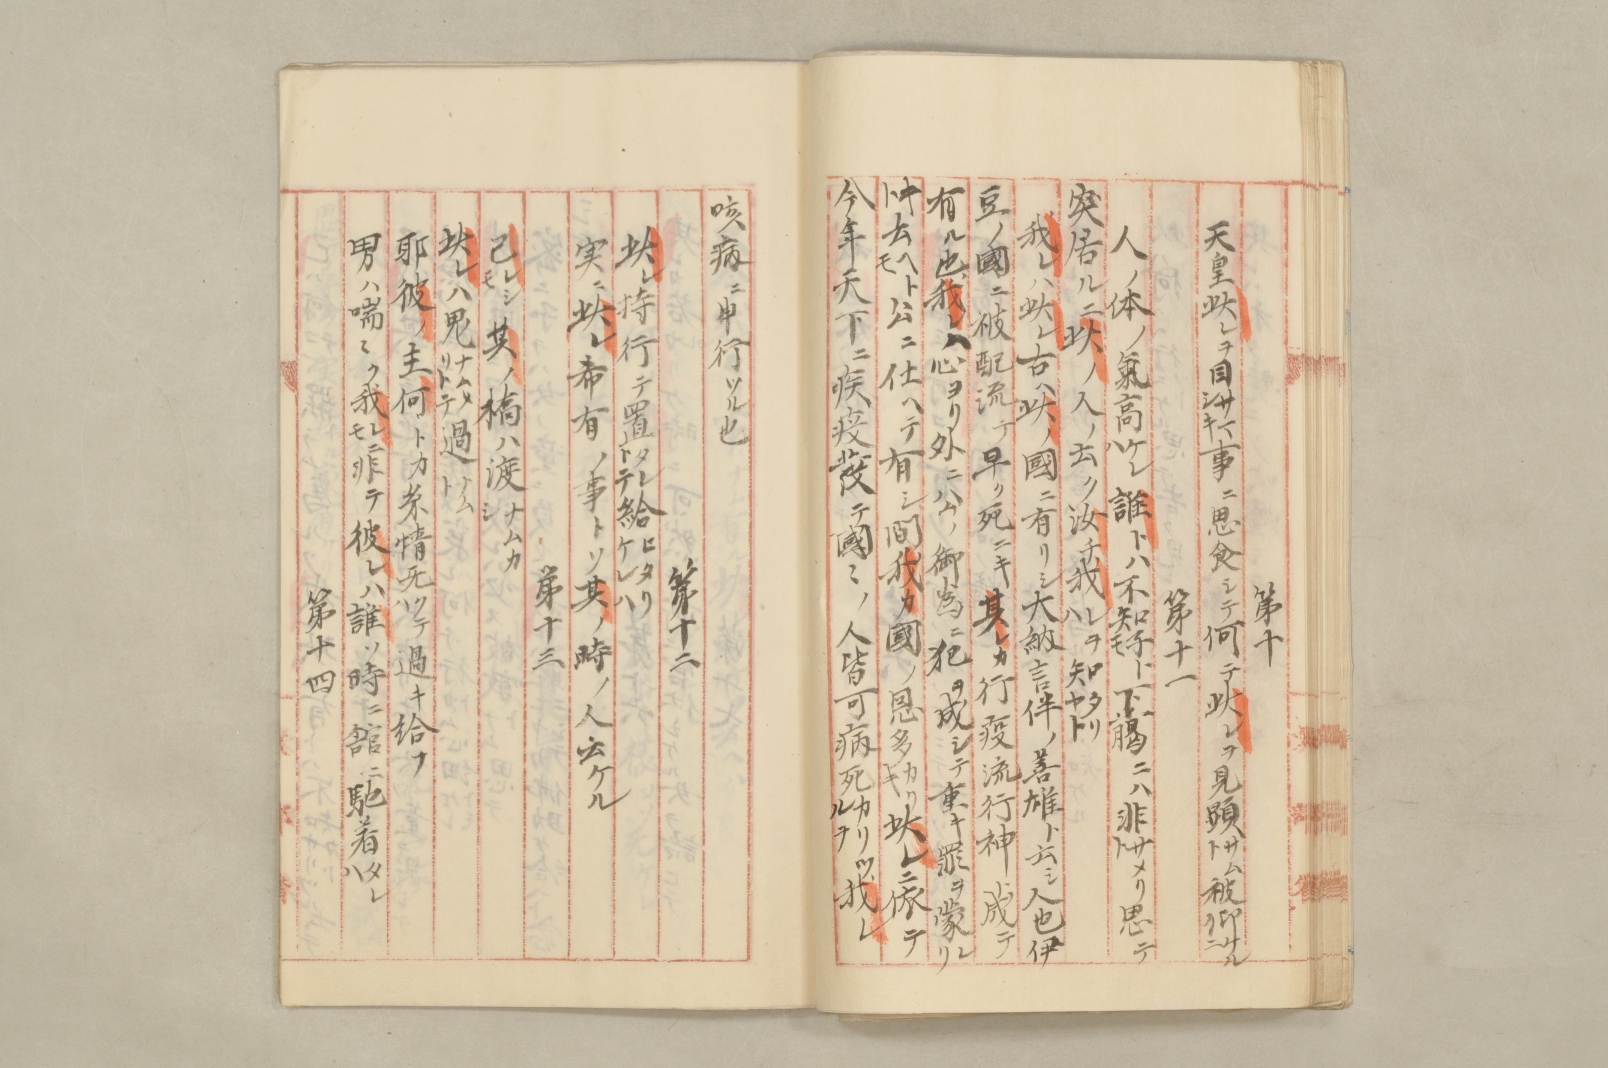 第十
天皇此レヲ目サマシキ事ニ思食シテ何テ此レヲ見顕サムト被仰ケルニ
第十一
人ノ体ノ氣高ケレハ誰トハ不知子トモ下臈ニハ非サメリト思テ
突居ルニ此ノ人ノ云ク汝チ我レヲハ知タリヤト
我レハ此レ古ヘ此ノ國ニ有リシ大納言伴ノ善雄ト云シ人也伊
豆ノ國ニ被配流テ早ク死ニキ其レカ行疫流行神ト成テ
有ル也我レハ心ヨリ外ニ公ノ御為ニ犯ヲ成シテ重キ罪ヲ蒙レリ
ト云ヘトモ公ニ仕ヘテ有シ間我カ國ノ恩多カリキ此レニ依テ
今年天下ニ疾疫發テ國ミノ人皆可病死カリツルヲ我レ
咳病ニ申行ツル也
第十二
此レ持行テ置タレトテ給ヒタリケレハ
実ニ此レ希有ノ事トソ其ノ時ノ人云ケル
第十三
己レモシ其ノ橋ハ渡ナムカシ
此レハ鬼ナリトテ過ナムト
耶彼ノ主何トカ糸情无ツテハ過キ給フ
男ハ喘ミク我レモニ非テ彼レハ誰ソ時ニ舘ニ馳着タレハ
第十四